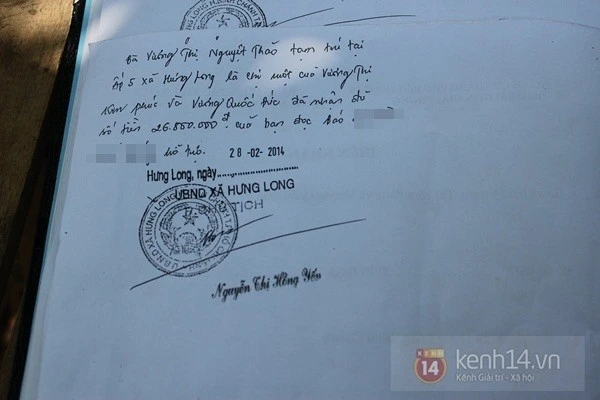 Bà Vương Thị Nguyệt Thảo tạm trú tại
Ấp 5 xã Hưng Long là chị ruột của Vương Thị
Kim Phúc và Vương Quốc Đức đã nhận đủ
số tiền 26.850.000đ của bạn đọc báo
hỗ trợ.
28-02-2014
Hưng Long, ngày
UBND XÃ HƯNG LONG
TỊCH
UBND XÃ HƯNG LONG
Nguyễn Thị Hồng Yến
KÊNH 14
kenh14.vn
Kênh Giải trí - Xã hội